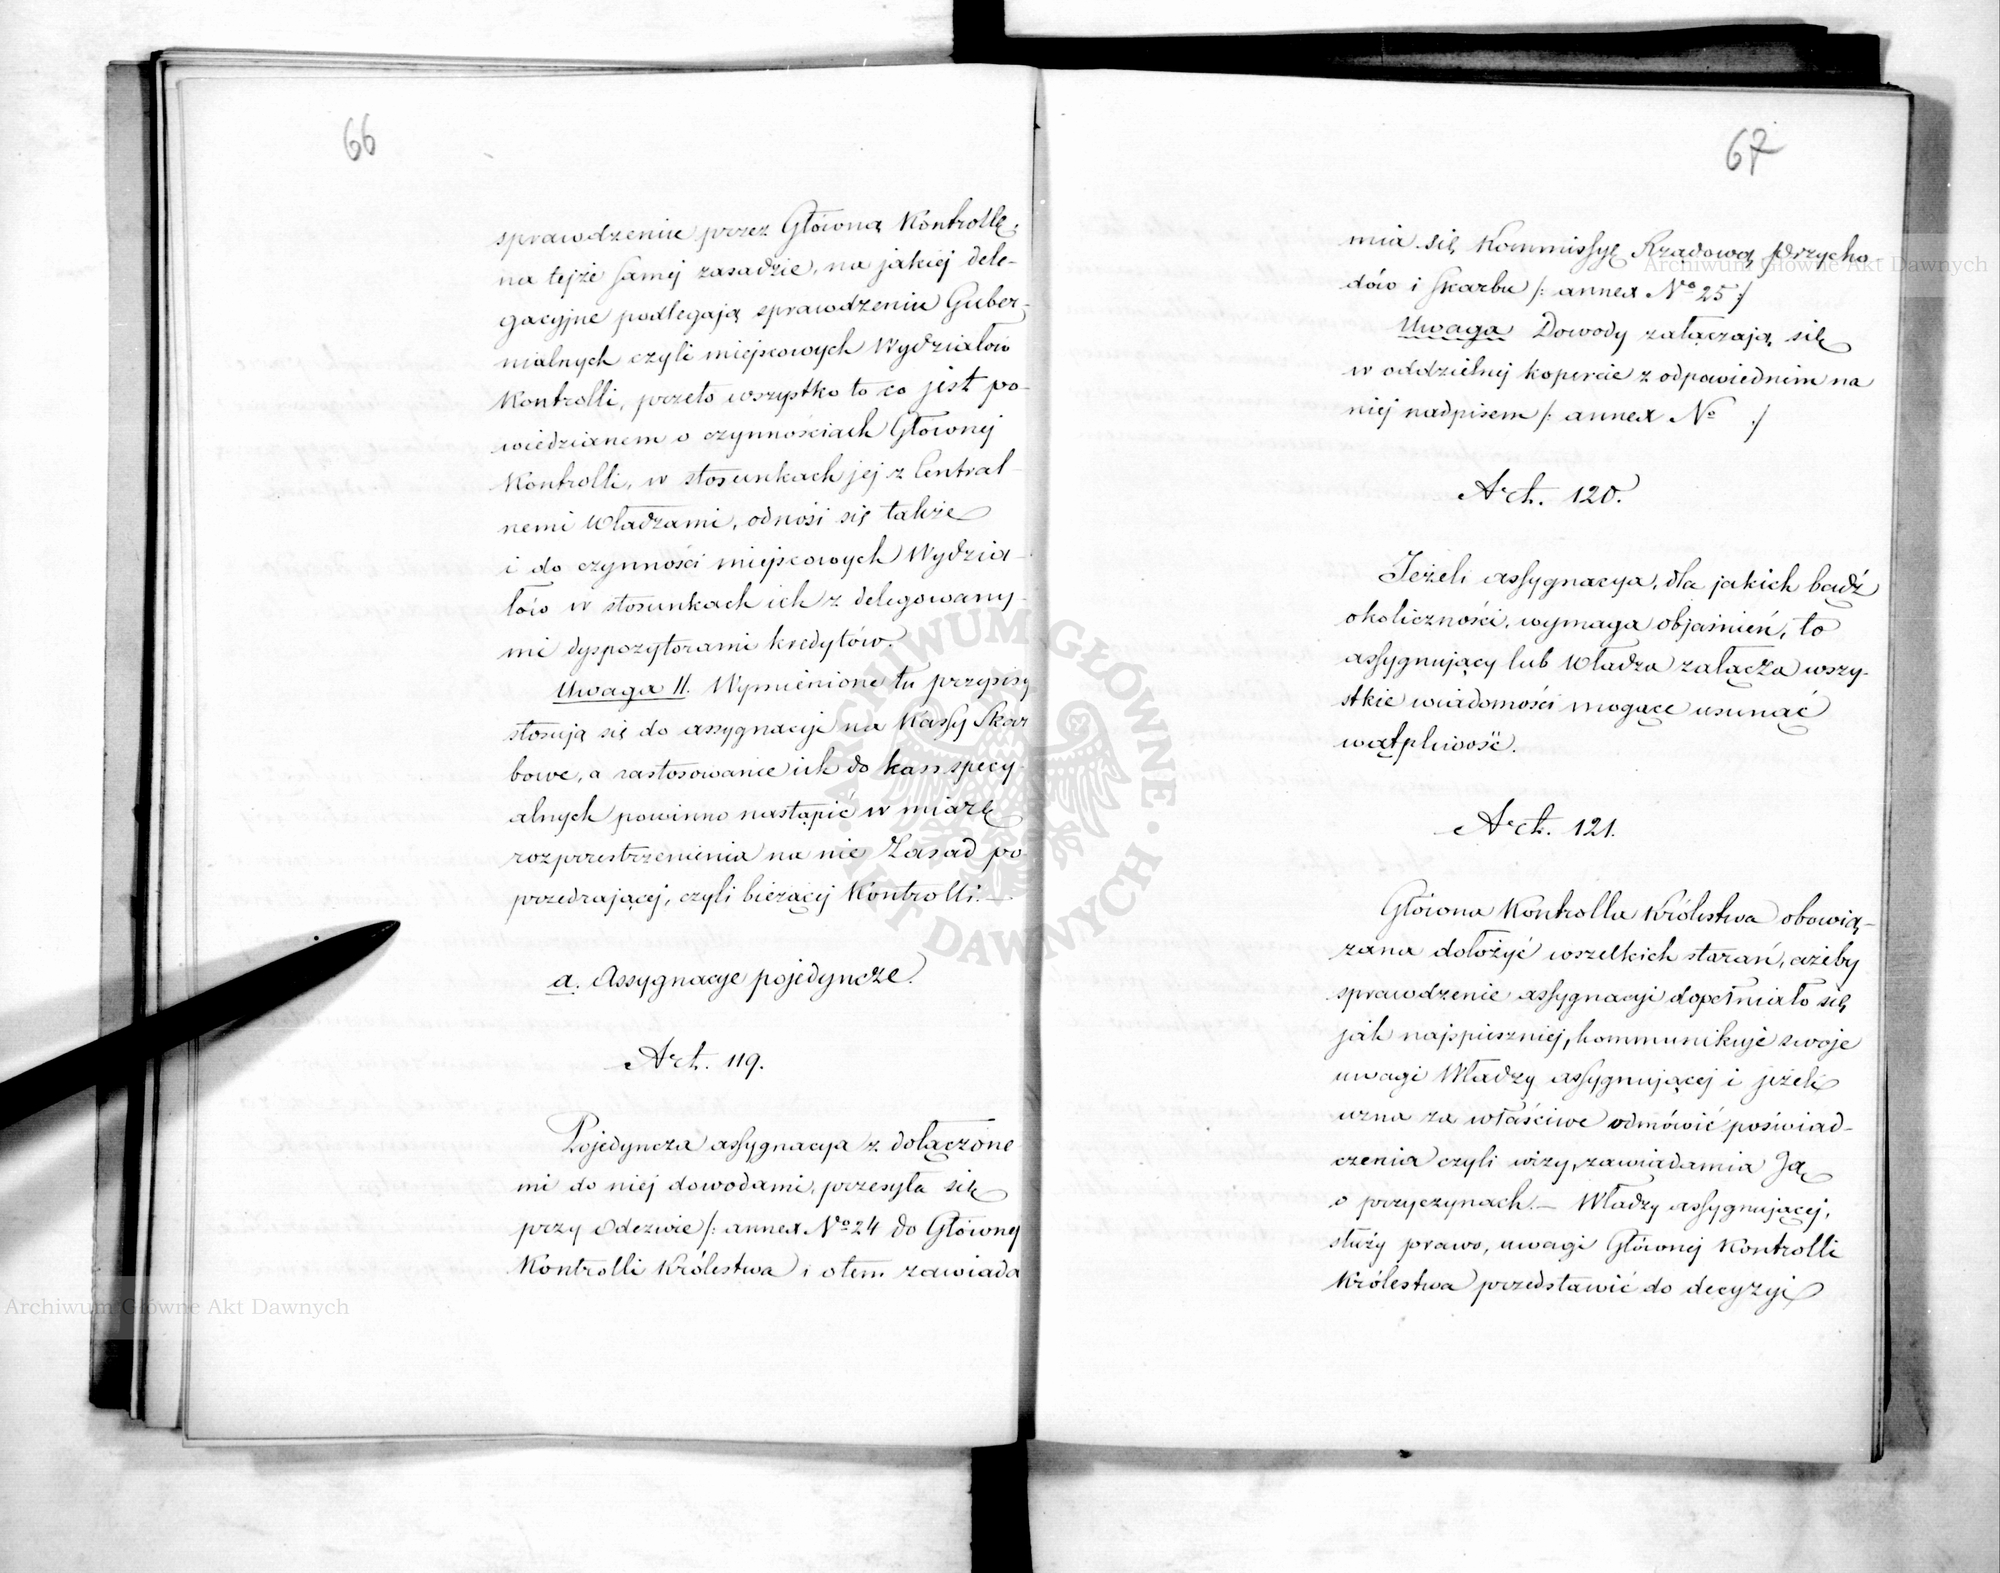 66
sprawdzeniu przez Główną Kontrollę,
na tejże samej zasadzie, na jakiej dele-
gacyjne podlegają sprawdzeniu Guber-
nialnych czyli miejscowych Wydziałów
Kontrolli, przeto wszystko to co jest po-
wiedzianem o czynnościach Głównej
Kontrolli, w stosunkach jej z Central-
nemi Władzami, odnosi się także
i do czynności miejscowych Wydzia-
łów w stosunkach ich z delegowany-
mi dyspozytorami kredytów.
Uwaga II. Wymienione tu przepisy
stosują się do assygnacyje na Kassy Skar
bowe, a zastosowanie ich do kass specy-
alnych powinno nastąpić w miarę
rozprzestrzenienia na nie Zasad po-
przedzającej, czyli bieżącej Kontrolli.—
a. Assygnacye pojedyncze.
Art. 119.
Pojedyncza assygnacya z dołączone
mi do niej dowodami, przesyła się
przy Odezwie /: annex No 24 do Głównej
Kontrolli Królestwa i o tem zawiada
67
mia się Kommissyę Rządową Przycho
dów i Skarbu /: annex No 25 :/
Uwaga Dowody załączają się
w oddzielnej kopercie z odpowiednim na
niej nadpisem /: annex No :/
Art. 120.
Jeżeli assygnacya, dla jakich bądź
okoliczności, wymaga objaśnień, to
assygnujący lub Władza załącza wszy-
stkie wiadomości mogące usunąć
wątpliwość.
Art. 121.
Główna Kontrolla Królestwa obowią-
zana dołożyć wszelkich starań, ażeby
sprawdzenie assygnacyi dopełniało się
jak najspieszniej, kommunikuje swoje
uwagi Władzy assygnującej i jeżeli
uzna za właściwe odmówić poświad-
czenia czyli wizy, zawiadamia Ją
o przyczynach.— Władzy assygnującej,
służy prawo, uwagi Głównej Kontrolli
Królestwa przedstawić do decyzyi
Archiwum Główne Akt Dawnych
Archiwum Główne Akt Dawnych
ARCHIWUM GŁÓWNE AKT DAWNYCH